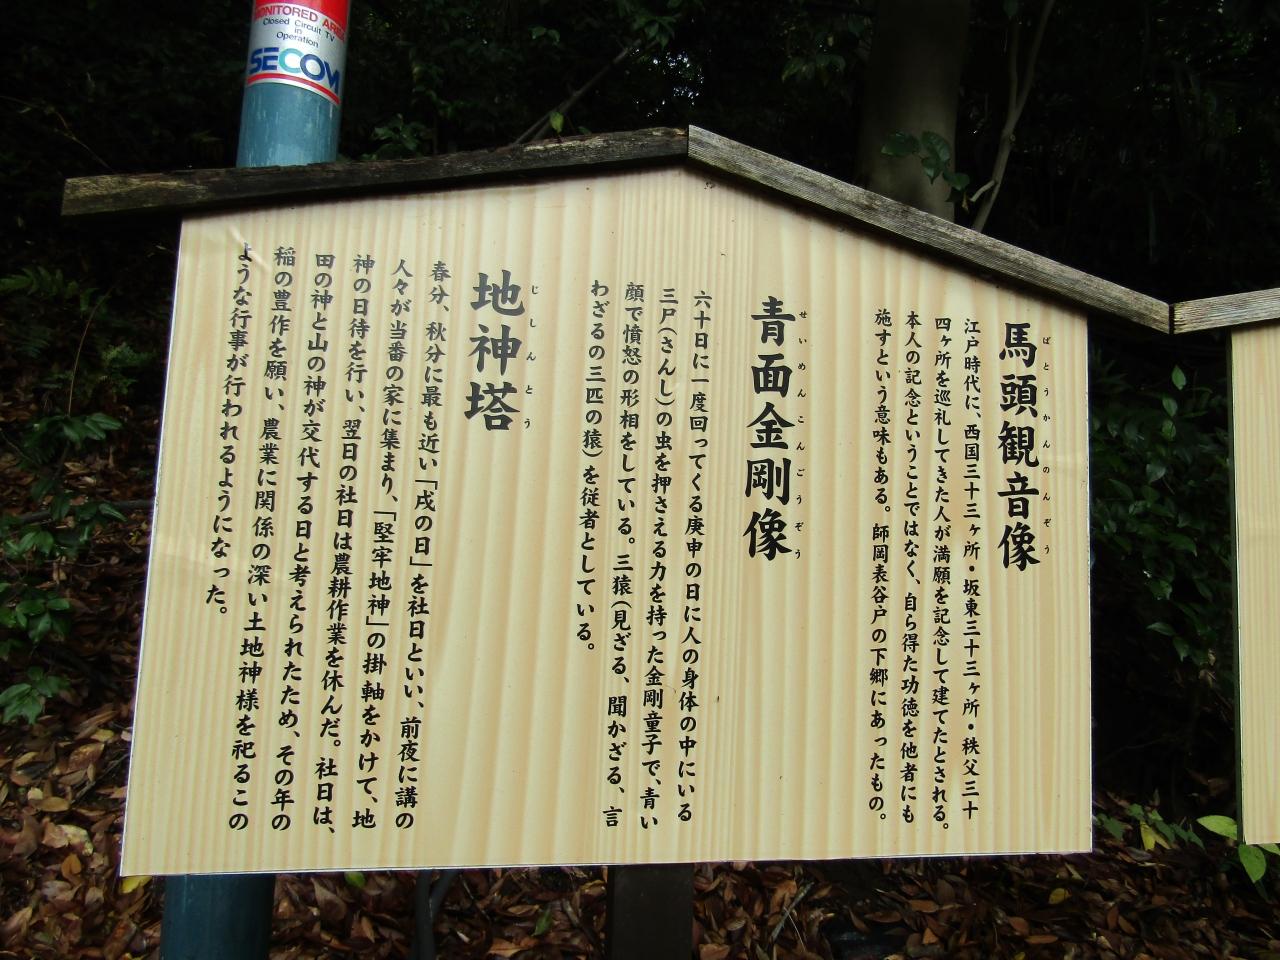 MONITORED AREA
Closed Circuit TV
in
Operation
SECOM
馬頭観音像
ばとうかんのんぞう
江戸時代に、西国三十三ヶ所・坂東三十三ヶ所・秩父三十
四ヶ所を巡礼してきた人が満願を記念して建てたとされる。
本人の記念ということではなく、自ら得た功徳を他者にも
施すという意味もある。師岡表谷戸の下郷にあったもの。
青面金剛像
せいめんこんごうぞう
六十日に一度回ってくる庚申の日に人の身体の中にいる
三尸(さんし)の虫を押さえる力を持った金剛童子で、青い
顔で憤怒の形相をしている。三猿(見ざる、聞かざる、言
わざるの三匹の猿)を従者としている。
地神塔
じしんとう
春分、秋分に最も近い「戌の日」を社日といい、前夜に講の
人々が当番の家に集まり、「堅牢地神」の掛軸をかけて、地
神の日待を行い、翌日の社日は農耕作業を休んだ。社日は、
田の神と山の神が交代する日と考えられたため、その年の
稲の豊作を願い、農業に関係の深い土地神様を祀るこの
ような行事が行われるようになった。